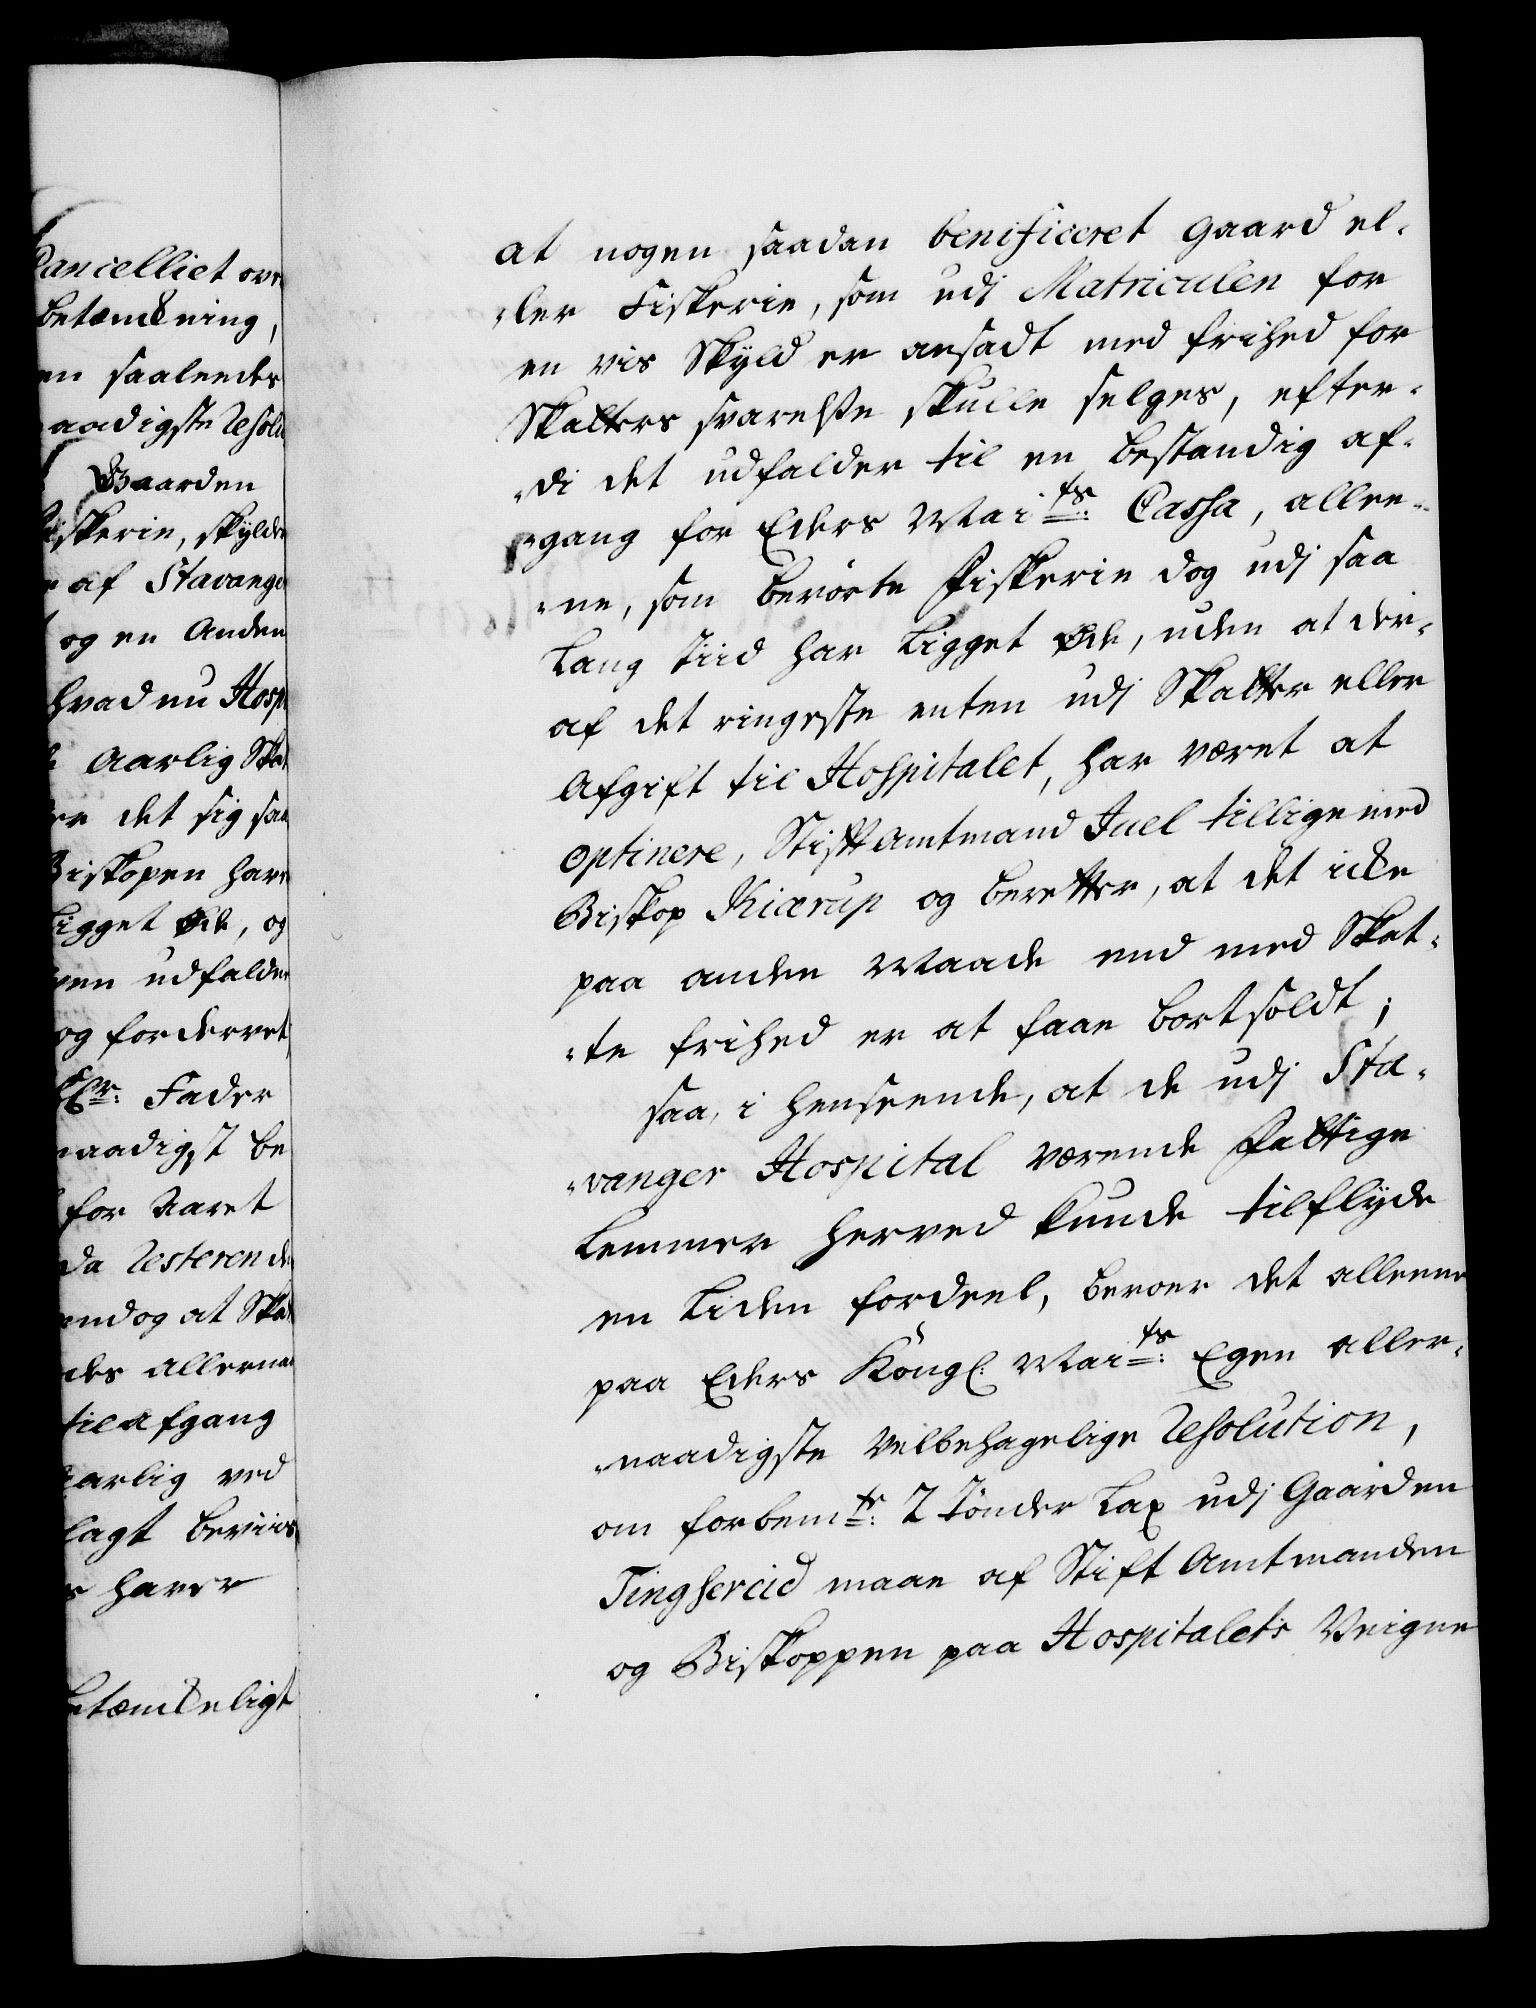 Cancelliet ove
betænkning,
en saaleedes
aadigste Resolu
Gaarden
skerie, skylde
af Stavanger
og en Anden
hvad nu Hosp
Aarlig Skat
er det sig saa
Biskopen have
ligget Øde, og
en udfalder
og fordervet
Hr: Fader
naadigst be
for Aaret
da Resterende
endog at Skat
des allernaa
til afgang
aarlig ved
lagt beviis
haver
betænkeligt
at nogen saadan benificeret gaard el-
-ler Fiskerie, som udj Matriculen for
en vis Skyld er ansadt med frihed for
Skatters svarelse skulle selges, efter-
-di det udfalder til en bestandig af-
-gang for Eders Maits: Cassa, allee-
-ne, som berørte Fiskerie dog udj saa
Lang Tiid har Ligget Øde, uden at der-
af det ringeste enten udj Skatter eller
Afgift til Hospitalet, har været at
optinere, Stiftamtmand Juel tillige med
Biskop Kiærup og beretter, at det icke
paa anden Maade end med Skat-
-te frihed er at faae bortsoldt;
saa, i henseende, at de udj Sta-
-vanger Hospital værende Fattige
Lemmer herved kunde tilflyde
en Liden fordeel, beroer det alleene
paa Eders Kongl: Maits: Egen aller-
-naadigste velbehagelige Resolution,
om forbemte: 2 Tønder Lax udj Gaarden
Tinghereid maae af Stift Amtmanden
og Biskoppen paa Hospitalets Veigne